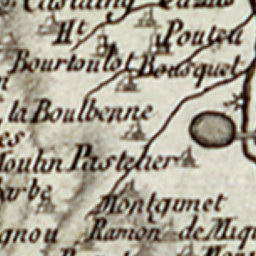 Ht Pouteu
Bourtoulot Bousquet
la Boulbenne
es
Moulin Pastelier
arbe
Montgimet
gnou Ramon de Miq